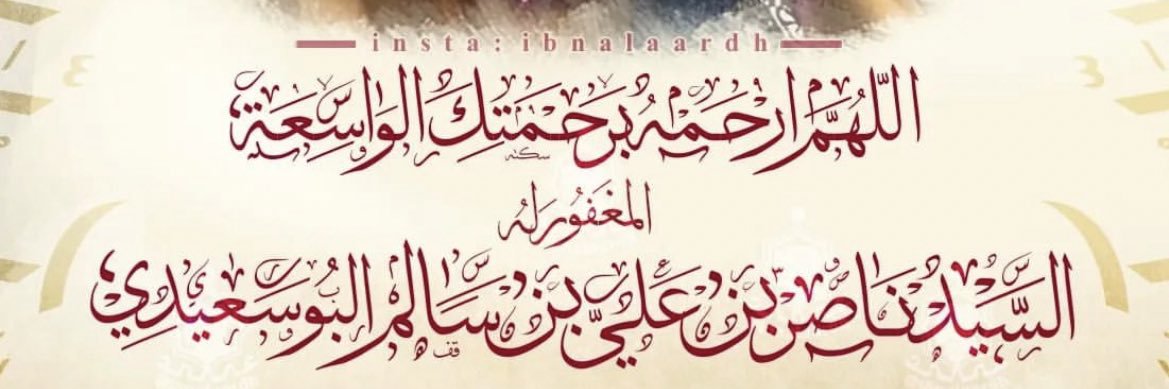 insta: ibnalaardh
اللّهُمَّ ارْحَمْهُ بِرَحْمَتِكَ الوَاسِعَة
المغفُور لهُ
السَّيِّد نَاصِر بِن عَلِيّ بِن سَالِم البُوسَعِيدِي